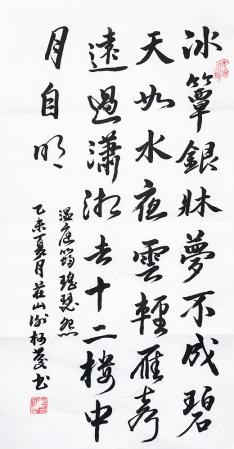 冰簟銀牀夢不成碧
天如水夜雲輕雁聲
遠過瀟湘去十二樓中
月自明
溫庭筠瑤瑟怨
乙未夏月莊山書